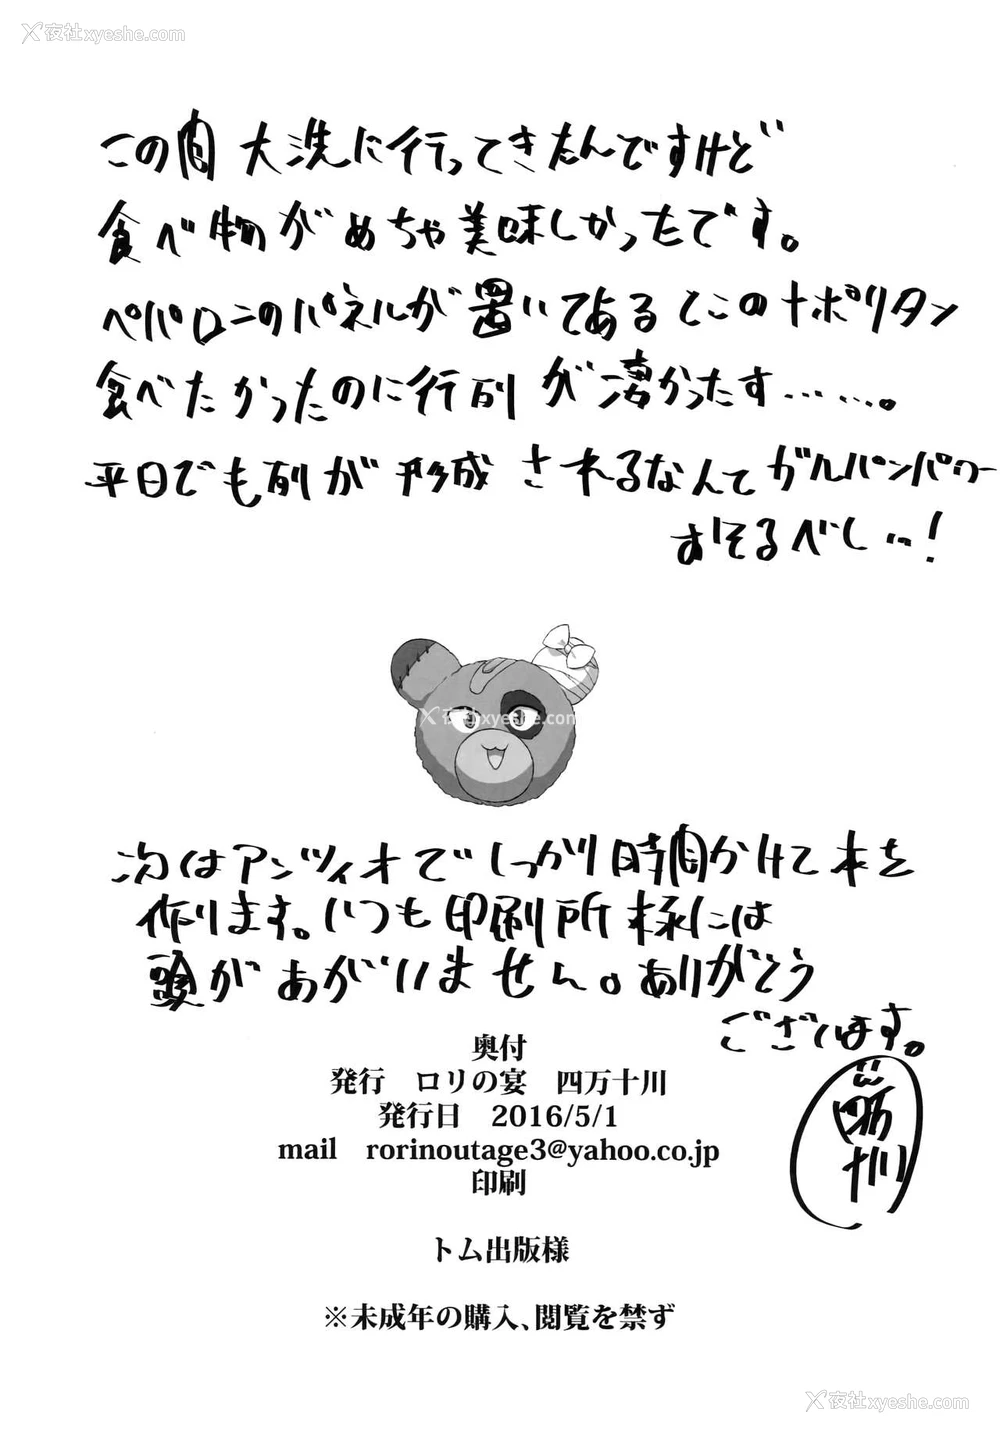 夜社xyeshe.com
この間 大洗に行ってきたんですけど
食べ物がめちゃ美味しかったです。
ペパロニのパネルが置いてあるとこのナポリタン
食べたかったのに行列が凄かったす……。
平日でも列が形成されるなんてガルパンパワー
おそるべし…!
夜社xyeshe.com
次はアンツィオでしっかり時間かけて本を
作ります。いつも印刷所様には
頭があがいません。ありがとう
ございます。
奥付
発行 ロリの宴 四万十川
発行日 2016/5/1
mail rorinoutage3@yahoo.co.jp
印刷
四万十川
トム出版様
※未成年の購入、閲覧を禁ず
夜社xyeshe.com